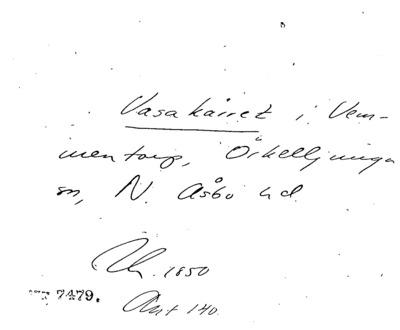 Vasakärret i Vem-
mentorp, Örkelljunga
sn, N. Åsbo hd
1850
7479.
Ant 140